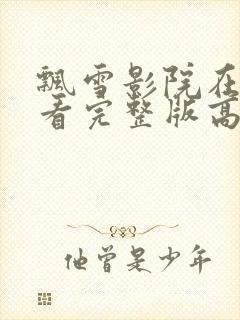 飘雪影院在
看完整版高
他曾是少年